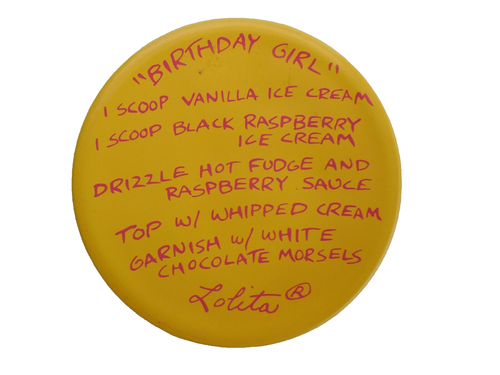 "BIRTHDAY GIRL"
1 SCOOP VANILLA ICE CREAM
1 SCOOP BLACK RASPBERRY
ICE CREAM
DRIZZLE HOT FUDGE AND
RASPBERRY SAUCE
TOP W/ WHIPPED CREAM
GARNISH W/ WHITE
CHOCOLATE MORSELS
Lolita ®